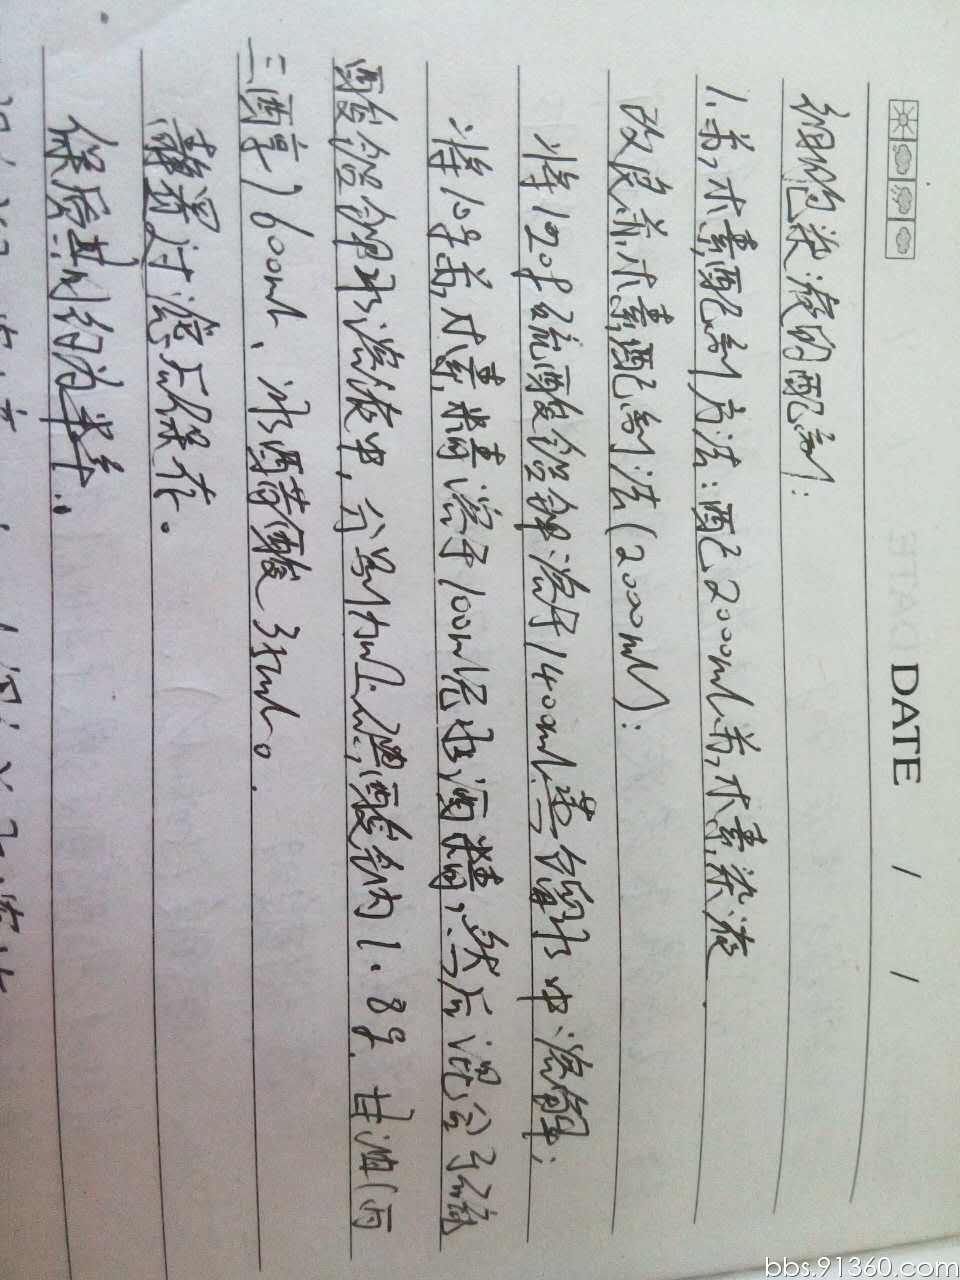 DATE / /
细胞染液的配制:
1.苏木素配制方法:配2000ml苏木素染液
改良苏木素配制法(2000ml):
将120g硫酸铝钾溶于1400ml蒸馏水中溶解;
将10g苏木素精溶于100ml无水酒精,然后混合于硫
酸铝钾水溶液中,分别加上碘酸钠1.8g.甘油(丙
三醇)600ml、冰醋酸35ml。
静置过滤后保存。
保质期约为半年.
bbs.91360.com